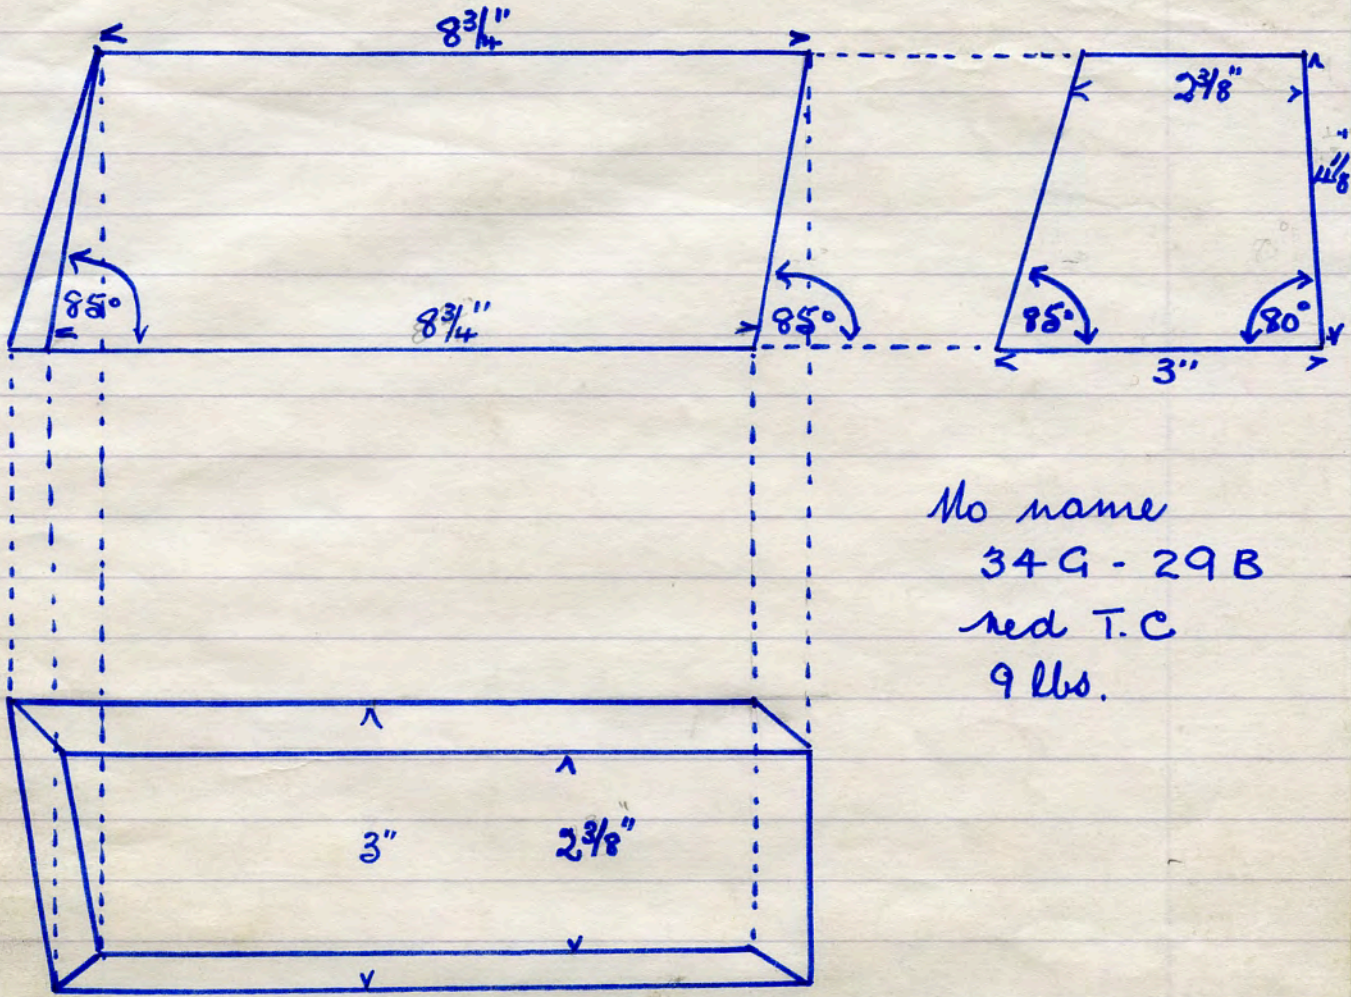 8 3/4"
2 3/8"
4 1/8"
85°
8 3/4"
85°
85°
80°
3"
No name
34 G - 29 B
red T.C
9 lbs.
3"
2 3/8"